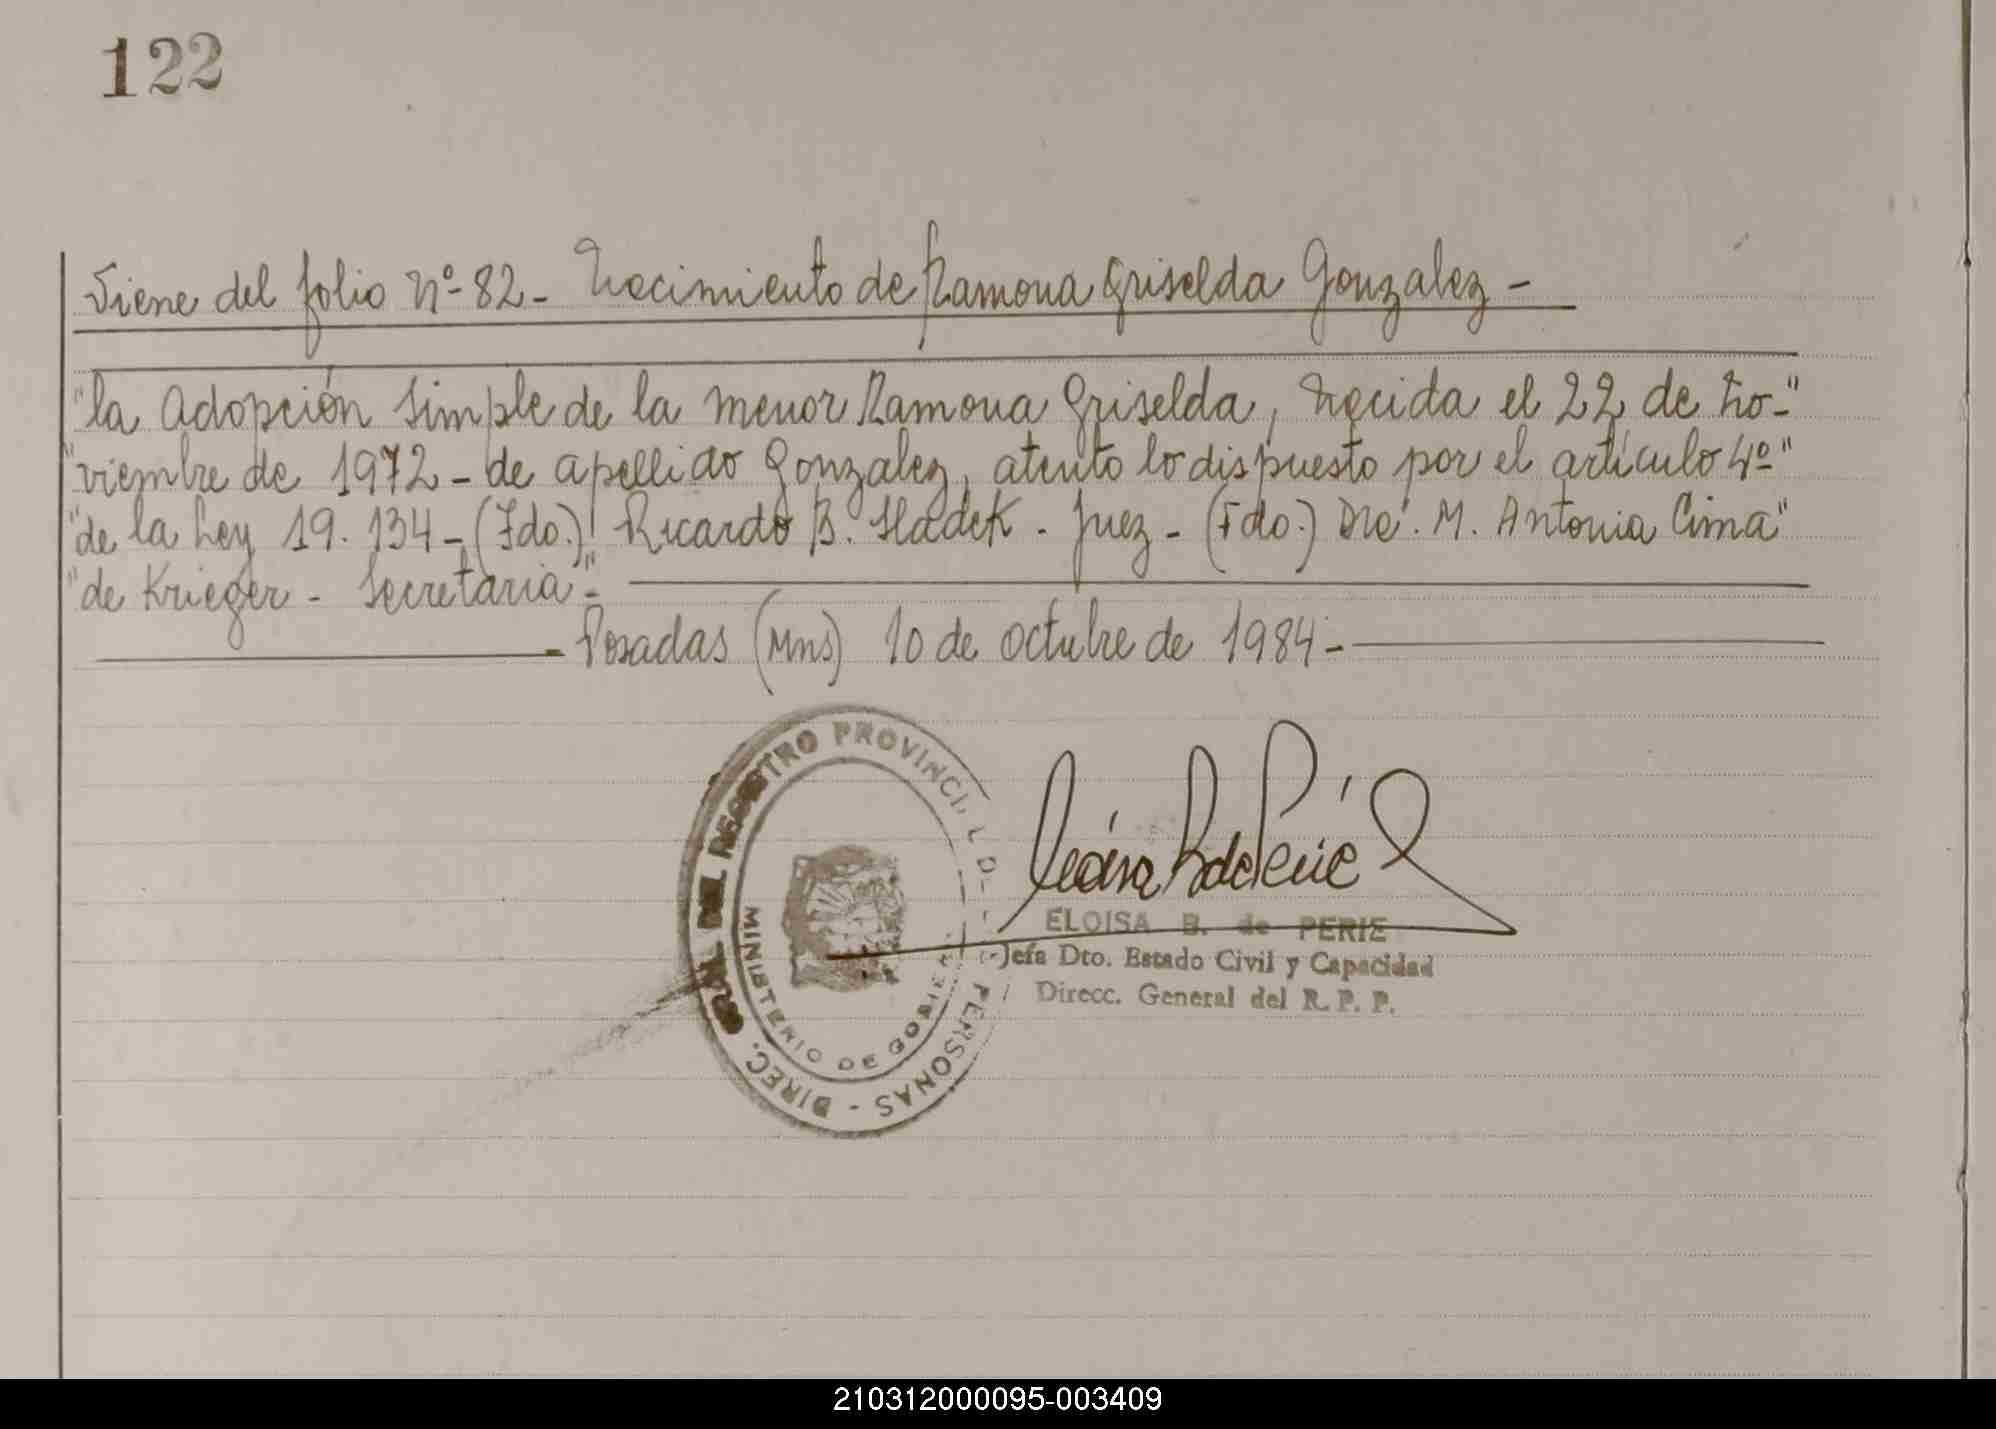 122
Viene del folio Nº 82 - Nacimiento de Ramona Griselda Gonzalez -
"la adopción simple de la menor Ramona Griselda, nacida el 22 de no-"
"viembre de 1972 - de apellido Gonzalez, atento lo dispuesto por el artículo 4º"
"de la Ley 19.134 - (Fdo.) Ricardo B. Sladek - Juez - (Fdo.) Dra. M. Antonia Cima"
"de Krieger - Secretaria" -
Posadas (Mns) 10 de octubre de 1984 -
DIREC. GRAL DEL REGISTRO PROVINCIAL DE PERSONAS -
MINISTERIO DE GOBIER
ELOISA B. de PERIE
Jefa Dto. Estado Civil y Capacidad
Direcc. General del R. P. P.
210312000095-003409